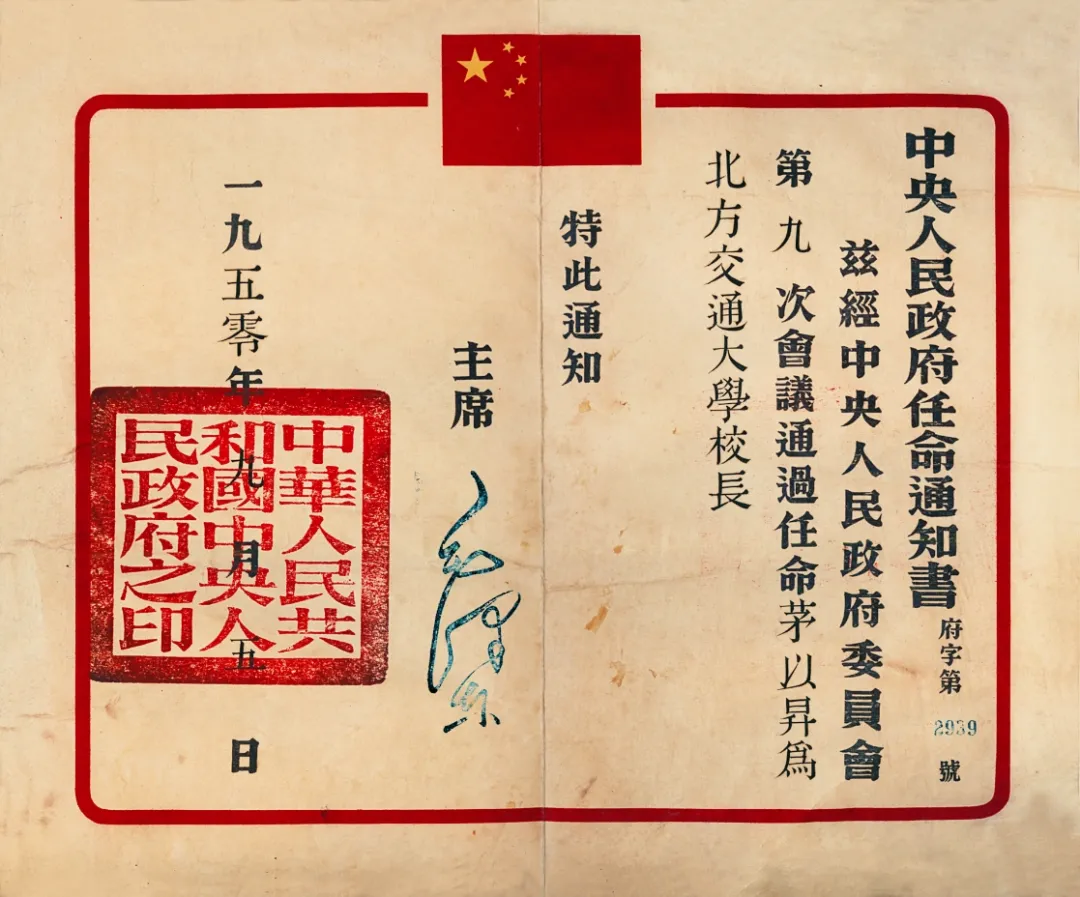 中央人民政府任命通知書
府字第 2939 號
茲經中央人民政府委員會
第九次會議通過任命茅以昇爲
北方交通大學校長
特此通知
主席 毛澤東
一九五零年九月五日
中華人民共
和國中央人
民政府之印